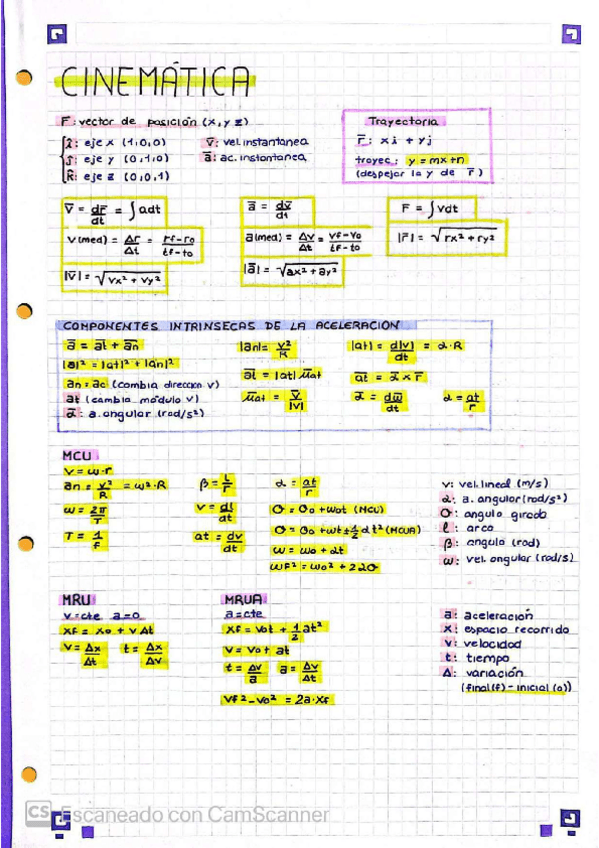 CINEMÁTICA
r̄: vector de posición (x,y z)
î: eje x (1,0,0)
ĵ: eje y (0,1,0)
k̂: eje z (0,0,1)
v̄: vel. instantanea
ā: ac. instantanea
Trayectoria
r̄: xi + yj
trayec: y = mx+n
(despejar la y de r̄)
v̄ = dr̄/dt = ∫adt
v(med) = Δr/Δt = rf-ro/tf-to
|v̄| = √vx² + vy²
ā = dv̄/dt
a(med) = Δv/Δt = vf-vo/tf-to
|ā| = √ax² + ay²
r̄ = ∫vdt
|r̄| = √rx² + ry²
COMPONENTES INTRINSECAS DE LA ACELERACION
ā = āt + ān
|a|² = |at|² + |an|²
an = ac (cambia direccion v)
at (cambia módulo v)
ᾱ: a. angular (rad/s²)
|an| = v²/R
āt = |at| μ̄at
μ̄at = v̄/|v|
|at| = d|v|/dt = α·R
āt = ᾱ x r̄
ᾱ = dω̄/dt
α = at/r
MCU
v = ω·r
an = v²/R = ω²·R
ω = 2π/T
T = 1/f
β = l/r
v = dl/dt
at = dv/dt
α = at/r
θ = θo + ωot (MCU)
θ = θo + ωt ± 1/2 αt² (MCUA)
ω = ωo + αt
ωf² = ωo² + 2αθ
v: vel. lineal (m/s)
α: a. angular (rod/s²)
θ: angulo girado
l: arco
β: angulo (rad)
ω: vel. ongular (rad/s)
MRU
v=cte a=0
xf = xo + vΔt
v = Δx/Δt t = Δx/Δv
MRUA
a=cte
xf = vot + 1/2 at²
v = vo + at
t = Δv/a a = Δv/Δt
vf² - vo² = 2a·xf
a: aceleración
x: espacio recorrido
v: velocidad
t: tiempo
Δ: variación
(final(f) - inicial (o))
CS Escaneado con CamScanner